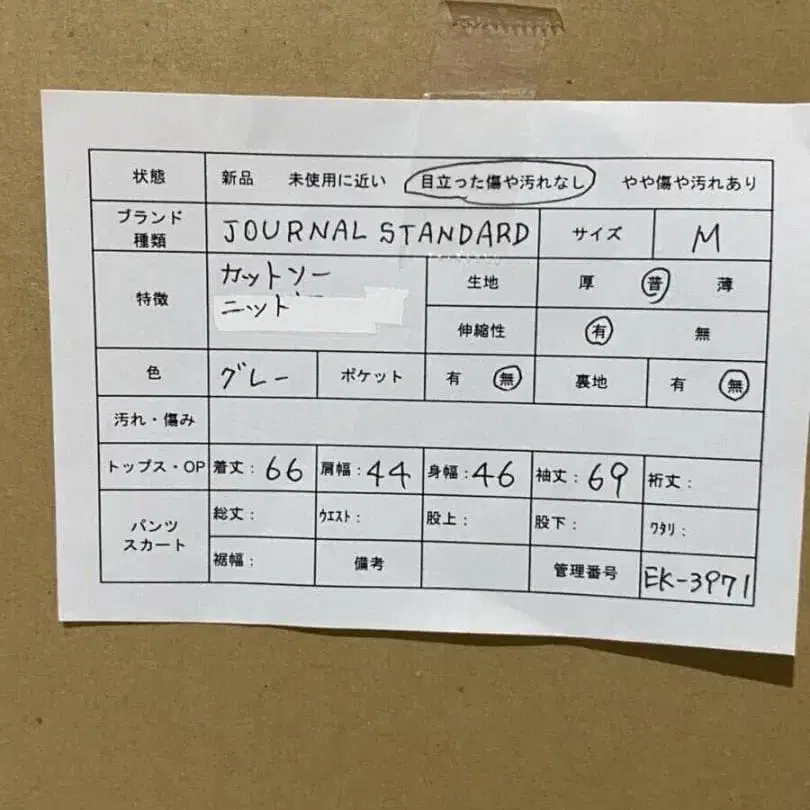 状態 新品 未使用に近い 目立った傷や汚れなし やや傷や汚れあり
ブランド
種類 JOURNAL STANDARD サイズ M
特徴 カットソー
ニット
生地 厚 普 薄
伸縮性 有 無
色 グレー ポケット 有 無 裏地 有 無
汚れ・傷み
トップス・OP 着丈: 66 肩幅: 44 身幅: 46 袖丈: 69 裄丈:
パンツ
スカート
総丈: ウエスト: 股上: 股下: ワタリ:
裾幅: 備考 管理番号 EK-3971